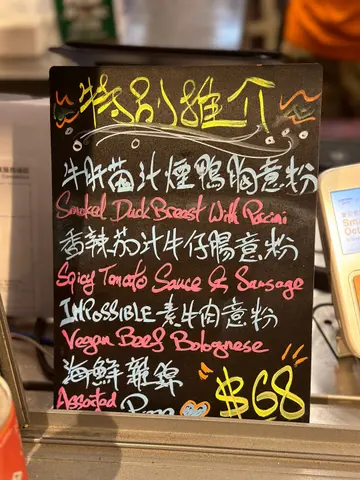 特別推介
牛肝菌汁煙鴨胸意粉
Smoked Duck Breast With Porcini
香辣茄汁牛仔腸意粉
Spicy Tomato Sauce & Sausage
IMPOSSIBLE 素牛肉意粉
Vegan Beef Bolognese
海鮮雜錦
Assorted
$68